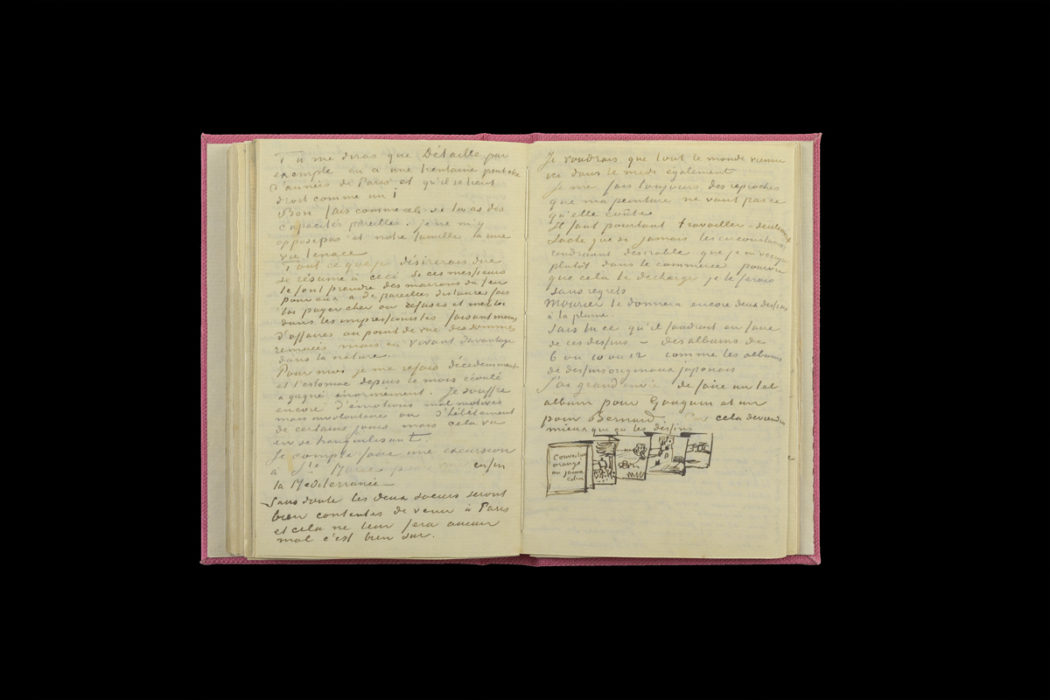 Tu me diras que Détaille par
exemple ou a une trentaine peut être
d'années de Paris et qu'il se tient
droit comme un i
Bon fais comme cela si tu as des
capacités pareilles. je ne m'y
oppose pas et notre famille a une
vie tenace
Tout ce que je désirerais dire
se résume à ceci de ces messieurs
te font prendre des marrons du feu
pour eux à de pareilles distances fais
les payer cher ou refuses et mets toi
dans les impressionistes faisant moins
d'affaires au point de vue des sommes
remuées mais en vivant davantage
dans la nature.
Pour moi je me refais décidemment
et l'estomac depuis le mois écoulé
a gagné énormement. Je souffre
encore d'émotions mal motivées
mais involontaires ou d'hébêtement
de certains jours mais cela va
en se tranquilisant.
Je compte faire une excursion
à Stes Maries pour voir enfin
la Mediterrannée
Sans doute les deux soeurs seront
bien contentes de venir à Paris
et cela ne leur fera aucun
mal c'est bien sur.
Je voudrais que tout le monde vienne
ici dans le midi également
Je me fais toujours des reproches
que ma peinture ne vaut pas ce
qu'elle coûte.
Il faut pourtant travailler – seulement
sache que si jamais les circonstances
rendraient désirable que je m'occupe
plutôt dans le commerce pourvu
que cela te décharge je le ferais
sans regrets
Mourier te donnera encore deux dessins
à la plume.
Sais tu ce qu'il faudrait en faire
de ces dessins – des albums de
6 ou 10 ou 12 comme les albums
de dessins originaux japonais
J'ai grand envie de faire un tel
album pour Gauguin et un
pour Bernard. Car cela deviendra
mieux que ça les dessins
Couverture
orange
ou jaune